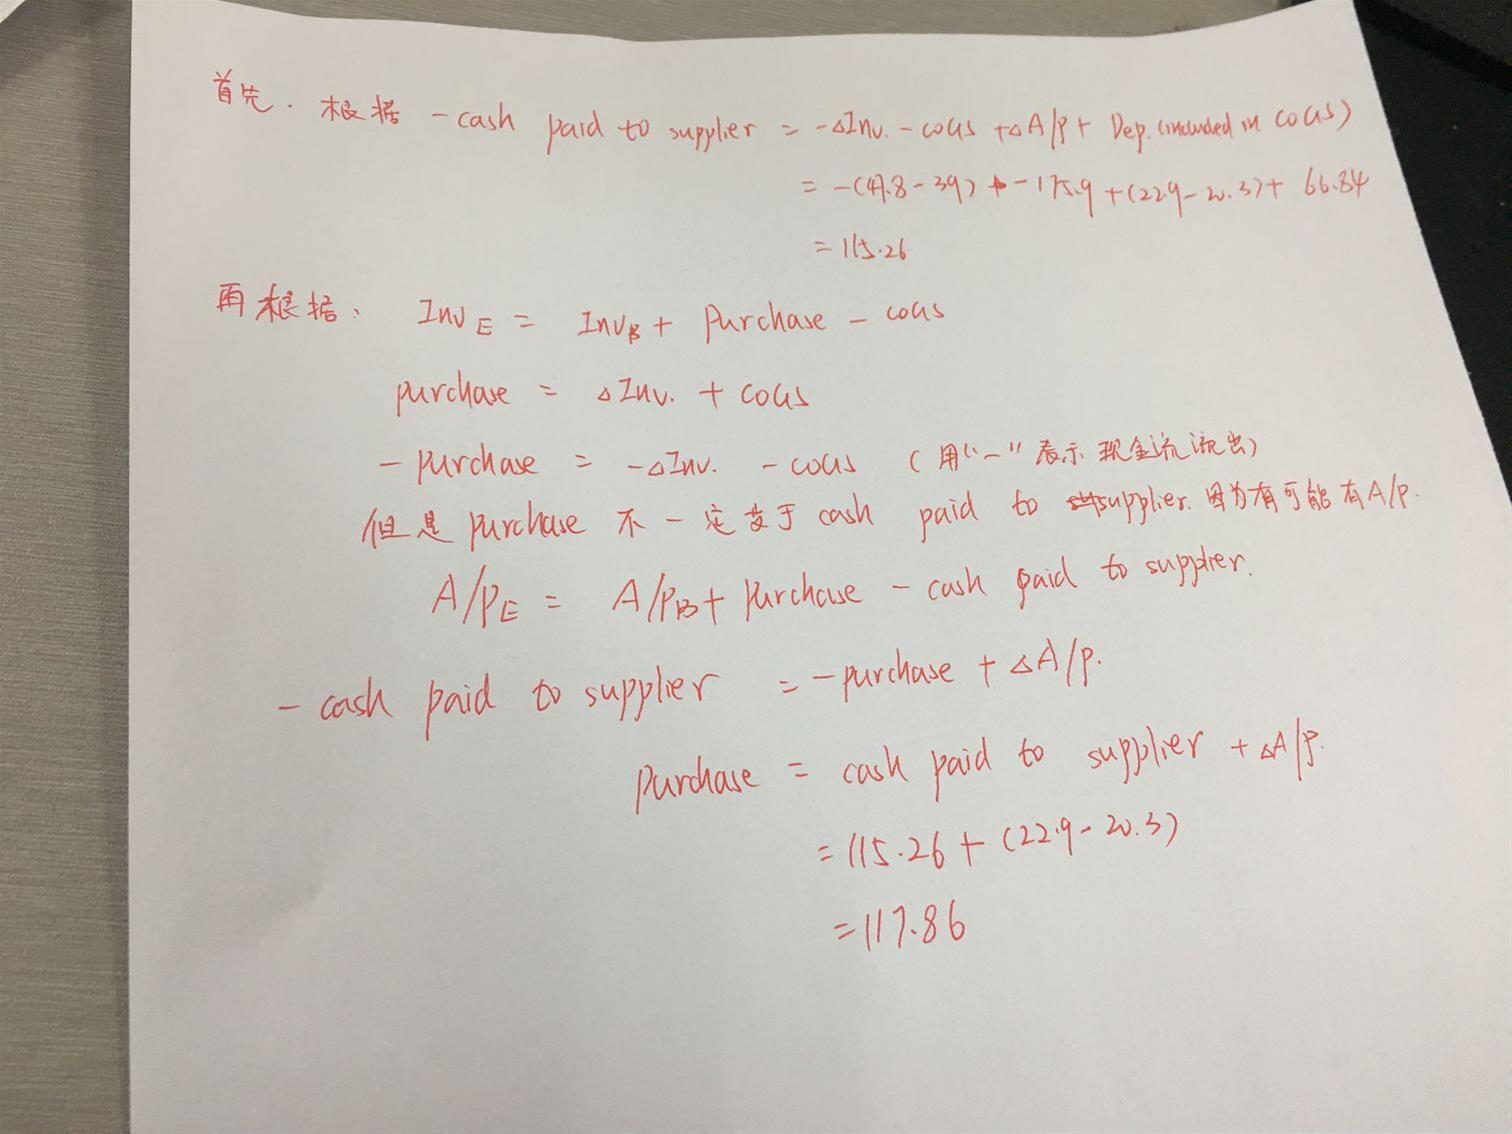 首先. 根据 -cash paid to supplier = -△Inv. - COGS +△A/P + Dep. (included in COGS)
= -(47.8-39) - 175.9 + (22.9-20.3) + 66.84
= 115.26
再根据、 Inv E = Inv B + purchase - COGS
purchase = △Inv. + COGS
- purchase = -△Inv. - COGS (用“-”表示现金流流出)
但是 purchase 不一定等于 cash paid to supplier. 因为有可能有A/P.
A/P E = A/P B + purchase - cash paid to supplier.
- cash paid to supplier = - purchase + △A/P.
purchase = cash paid to supplier + △A/P.
= 115.26 + (22.9-20.3)
= 117.86